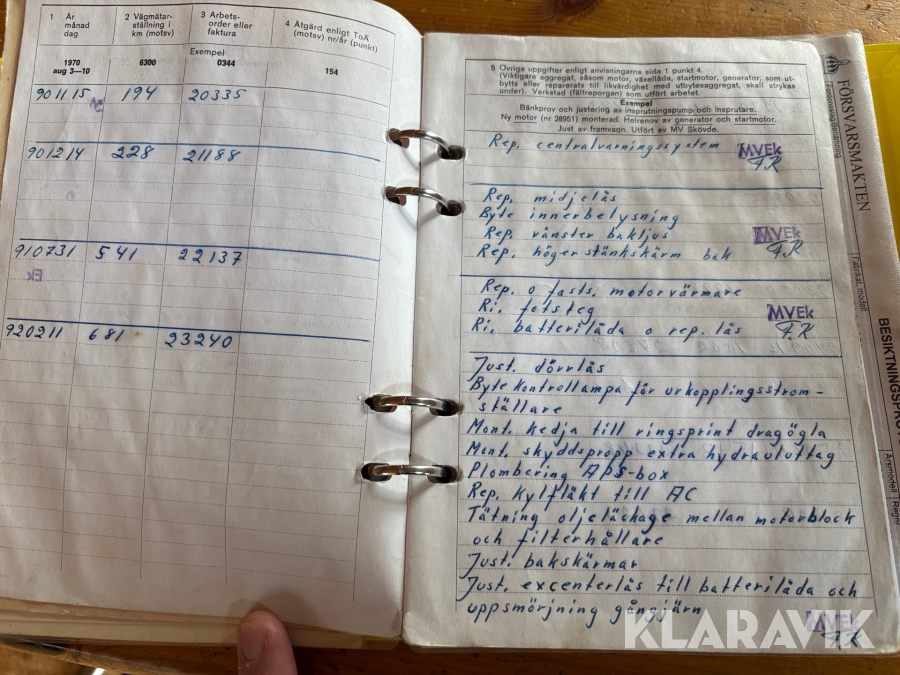 1 År månad dag
2 Vägmätar-ställning i km (motsv)
3 Arbets-order eller faktura
4 Åtgärd enligt ToA (motsv) nr/år (punkt)
Exempel
1970 aug 3—10 6300 0344 154
901115 194 20335
901214 228 21188
910731 541 22137
Ek
920211 681 23240
5 Övriga uppgifter enligt anvisningarna sida 1 punkt 4.
(Viktigare aggregat, såsom motor, växellåda, startmotor, generator, som ut-
bytts eller reparerats till likvärdighet med utbytesaggregat, skall strykas
under). Verkstad (fältreporgan) som utfört arbetet.
Exempel
Bänkprov och justering av insprutningspump och insprutare.
Ny motor (nr 28951) monterad. Helrenov av generator och startmotor.
Just av framvagn. Utfört av MV Skövde.
Rep. centralvarningssystem MVEk
F.K
Rep. midjelås
Byte innerbelysning
Rep. vänster bakljus MVEk
Rep. höger stänkskärm bak F.K
Rep. o fasts. motorvärmare
Ri. fotsteg MVEk
Ri. batterilåda o rep. lås F.K
Just. dörrlås
Byte kontrollampa för urkopplingsström-
ställare
Mont. kedja till ringsprint dragögla
Mont. skyddspropp extra hydrauluttag
Plombering APS-box
Rep. kylfläkt till AC
Tätning oljeläckage mellan motorblock
och filterhållare
Just. bakskärmar
Just. excenterlås till batterilåda och
uppsmörjning gångjärn MVEk
F.K
FÖRSVARSMAKTEN
Fabrikat, modell
Årsmodell
KLARAVIK